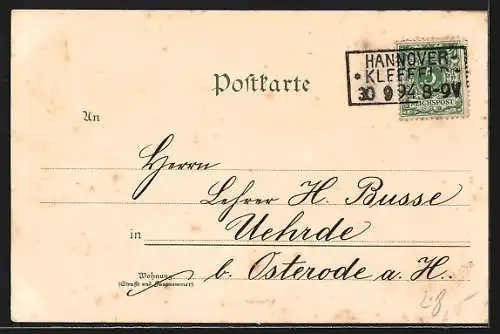 Postkarte
HANNOVER
* KLEEFELD *
30 9 94 8-9V
5
REICHSPOST
An
Herrn
Lehrer H. Busse
in Uehrde
Wohnung
(Straße und Hausnummer)
b. Osterode a. H.